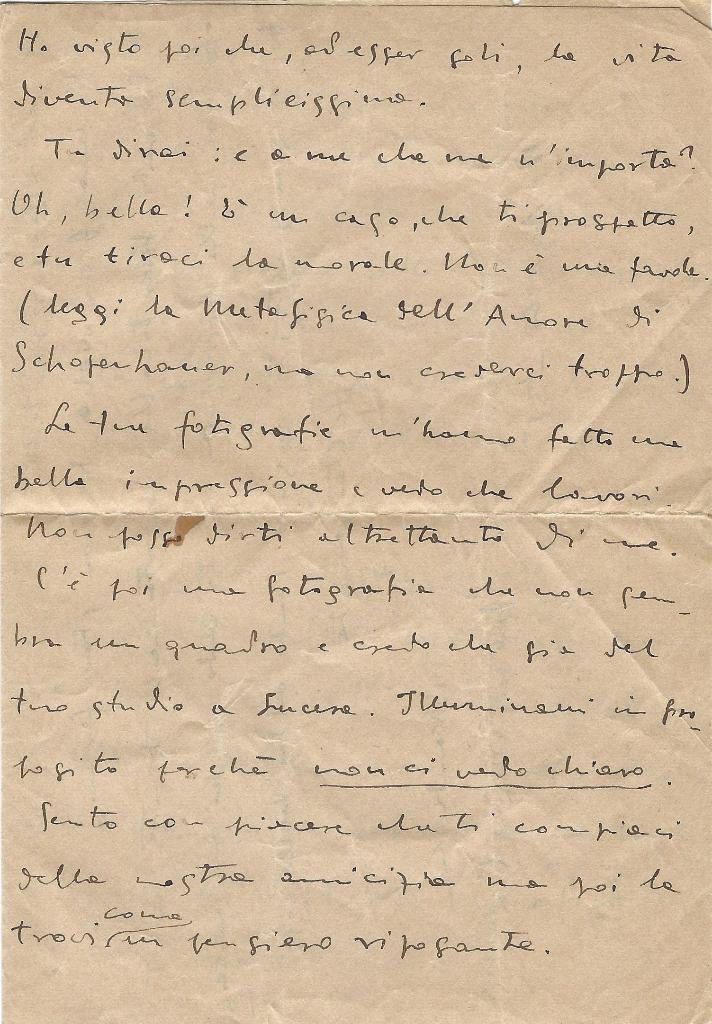 Ho visto poi che, ad esser soli, la vita
diventa semplicissima.
Tu dirai: e a me che me n'importa?
Oh, bella! È un caso, che ti prospetto,
e tu tiraci la morale. Non è una favola.
(leggi la Metafisica dell'Amore di
Schopenhauer, ma non crederci troppo.)
Le tue fotografie m'hanno fatto una
bella impressione e vedo che lavori.
Non posso dirti altrettanto di me.
C'è poi una fotografia che non sem-
bra un quadro e credo che sia del
tuo studio a Lucera. Illuminami in pro-
posito perchè non ci vedo chiaro.
Sento con piacere che ti compiaci
della nostra amicizia ma poi la
trovi come un pensiero riposante.